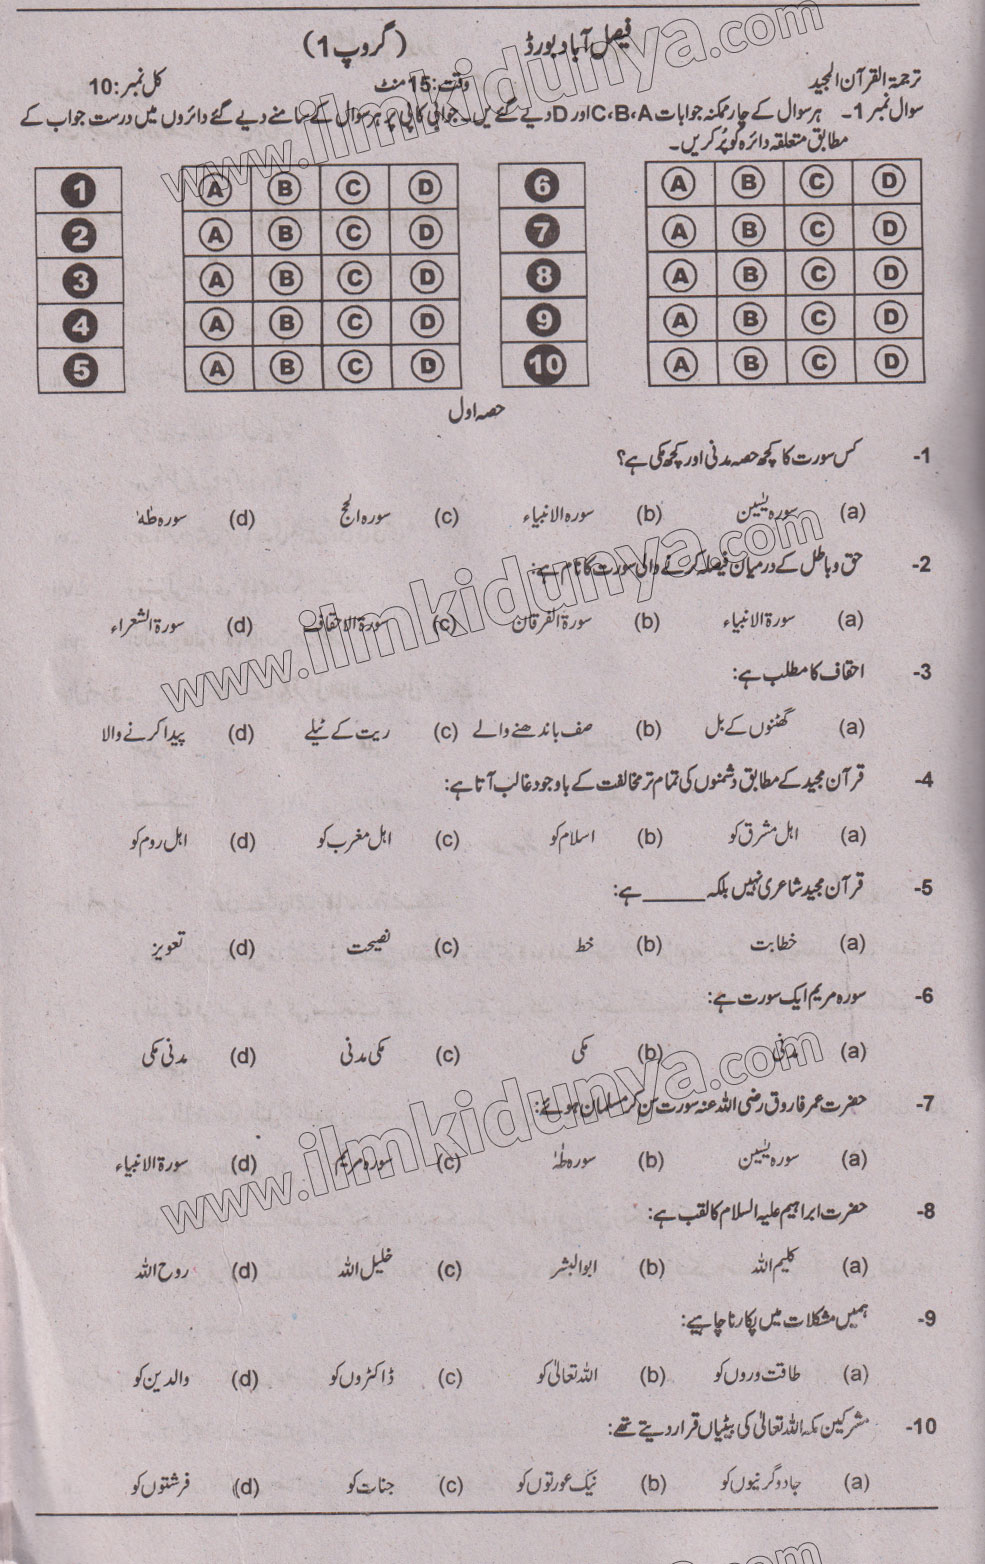 فیصل آباد بورڈ (گروپ 1)
ترجمۃ القرآن المجید وقت: 15 منٹ کل نمبر: 10
سوال نمبر 1۔ ہر سوال کے چار ممکنہ جوابات A، B، C اور D دیے گئے ہیں۔ جوابی کاپی پر ہر سوال کے سامنے دیے گئے دائروں میں درست جواب کے
مطابق متعلقہ دائرہ کو پُر کریں۔
1 A B C D 6 A B C D
2 A B C D 7 A B C D
3 A B C D 8 A B C D
4 A B C D 9 A B C D
5 A B C D 10 A B C D
حصہ اول
1- کس سورت کا کچھ حصہ مدنی اور کچھ مکی ہے؟
(a) سورہ یٰسین (b) سورہ الانبیاء (c) سورہ الحج (d) سورہ طہٰ
2- حق و باطل کے درمیان فیصلہ کرنے والی سورت کا نام ہے:
(a) سورۃ الانبیاء (b) سورۃ الفرقان (c) سورۃ الاحقاف (d) سورۃ الشعراء
3- احقاف کا مطلب ہے:
(a) گھٹنوں کے بل (b) صف باندھنے والے (c) ریت کے ٹیلے (d) پیدا کرنے والا
4- قرآن مجید کے مطابق دشمنوں کی تمام تر مخالفت کے باوجود غالب آتا ہے:
(a) اہل مشرق کو (b) اسلام کو (c) اہل مغرب کو (d) اہل روم کو
5- قرآن مجید شاعری نہیں بلکہ ______ ہے:
(a) خطابت (b) خط (c) نصیحت (d) تعویز
6- سورہ مریم ایک سورت ہے:
(a) مدنی (b) مکی (c) مکی مدنی (d) مدنی مکی
7- حضرت عمر فاروق رضی اللہ عنہ سورت سن کر مسلمان ہوئے:
(a) سورہ یٰسین (b) سورہ طٰہٰ (c) سورہ مریم (d) سورۃ الانبیاء
8- حضرت ابراہیم علیہ السلام کا لقب ہے:
(a) کلیم اللہ (b) ابوالبشر (c) خلیل اللہ (d) روح اللہ
9- ہمیں مشکلات میں پکارنا چاہیے:
(a) طاقت وروں کو (b) اللہ تعالیٰ کو (c) ڈاکٹروں کو (d) والدین کو
10- مشرکین مکہ اللہ تعالیٰ کی بیٹیاں قرار دیتے تھے:
(a) جادوگرنیوں کو (b) نیک عورتوں کو (c) جنات کو (d) فرشتوں کو
www.ilmkidunya.com
www.ilmkidunya.com
www.ilmkidunya.com